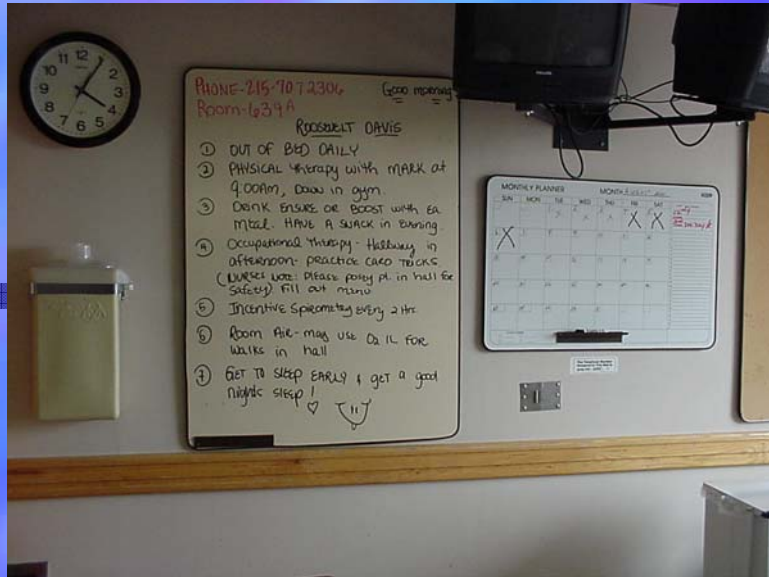 12
1
2
3
4
5
6
7
8
9
10
11
PHONE-215-7072306
Room-639A
Good morning
ROOSEVELT DAVIS
① OUT OF BED DAILY
② PHYSICAL therapy with MARK at
9:00AM, Down in gym.
③ DRINK ENSURE OR BOOST with Ea
meal. HAVE A SNACK in Evening.
④ Occupational therapy - Hallway in
afternoon - practice CARD TRICKS
(NURSES NOTE: Please posey pt. in hall for
safety). Fill out menu
⑤ Incentive Spirometry every 2 Hrs.
⑥ Room Air - may use O2 1L FOR
walks in hall
⑦ GET TO SLEEP EARLY & get a good
nights sleep!
PHILIPS
MONTHLY PLANNER
MONTH
SUN MON TUE WED THU FRI SAT
X X
X